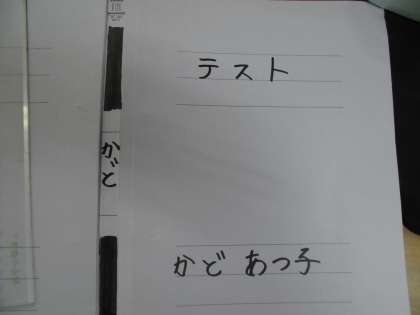 テスト
かど
かど あつ子